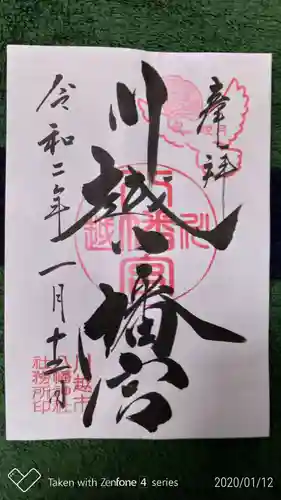 奉拝
川越八幡宮
令和二年一月十二日
川越市
八幡神社
社務所印
Taken with Zenfone 4 series
2020/01/12